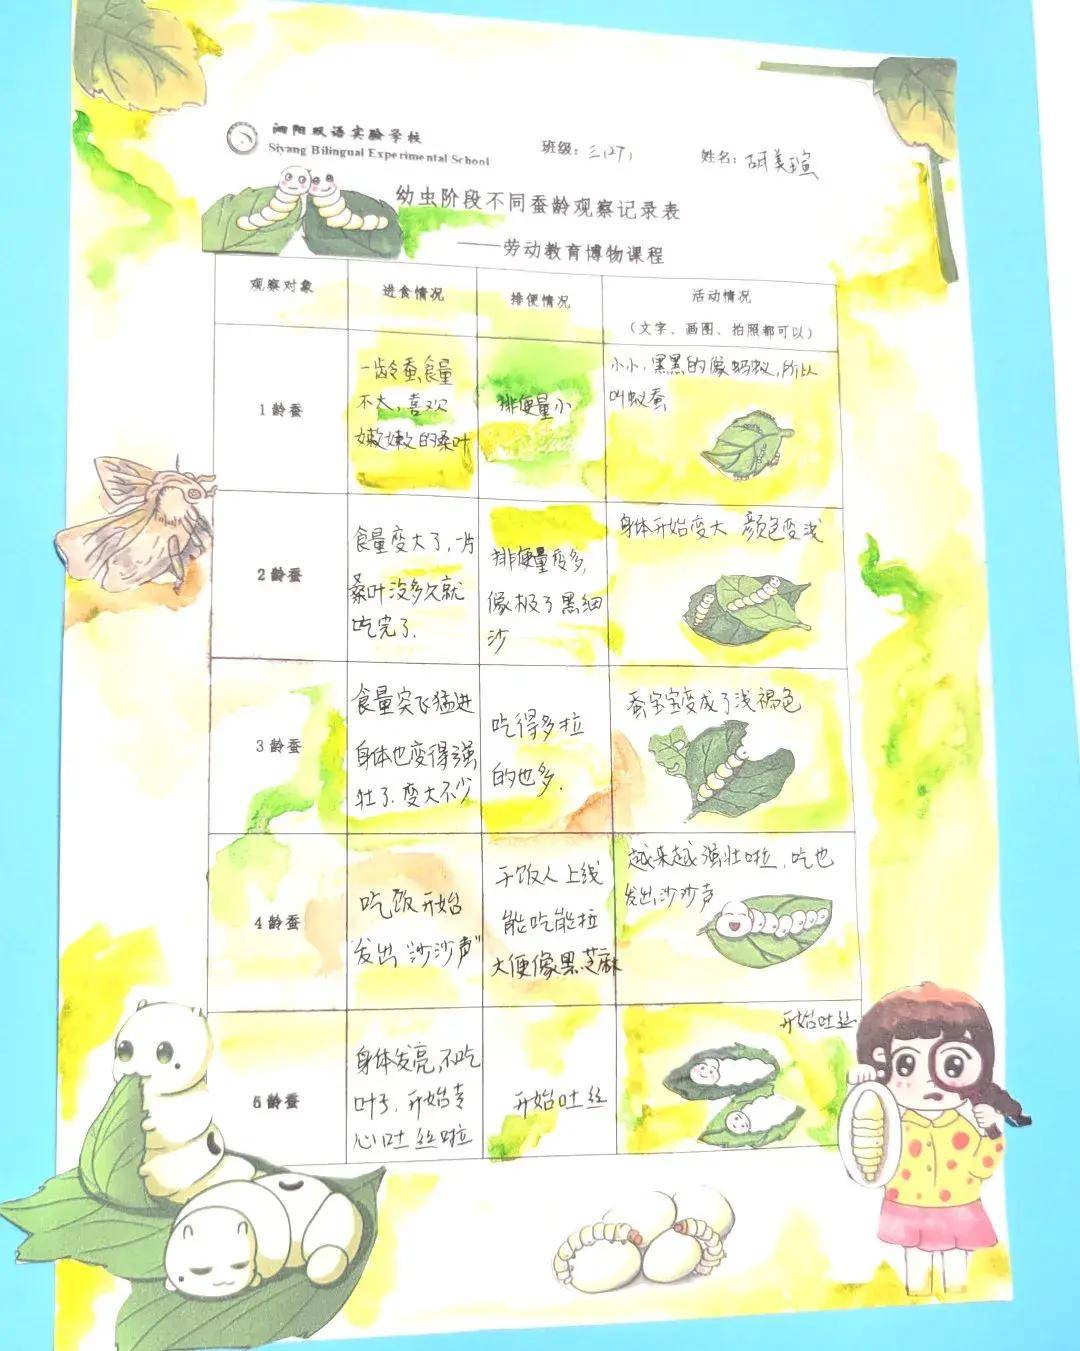 泗阳双语实验学校
Siyang Bilingual Experimental School
班级：三(27)
姓名：胡美瑄
幼虫阶段不同蚕龄观察记录表
——劳动教育博物课程
观察对象 进食情况 排便情况 活动情况
（文字、画图、拍照都可以）
1龄蚕
一龄蚕食量
不大，喜欢
嫩嫩的桑叶
排便量小
小小，黑黑的像蚂蚁，所以
叫蚁蚕
2龄蚕
食量变大了，一片
桑叶没多久就
吃完了.
排便量变多，
像极了黑细
沙
身体开始变大 颜色变浅
3龄蚕
食量突飞猛进
身体也变得强
壮了.变大不少
吃得多拉
的也多.
蚕宝宝变成了浅褐色
4龄蚕
吃饭开始
发出“沙沙声”
干饭人上线
能吃能拉
大便像黑芝麻
越来越强壮啦，吃也
发出沙沙声
5龄蚕
身体发亮，不吃
叶了，开始专
心吐丝啦
开始吐丝
开始吐丝